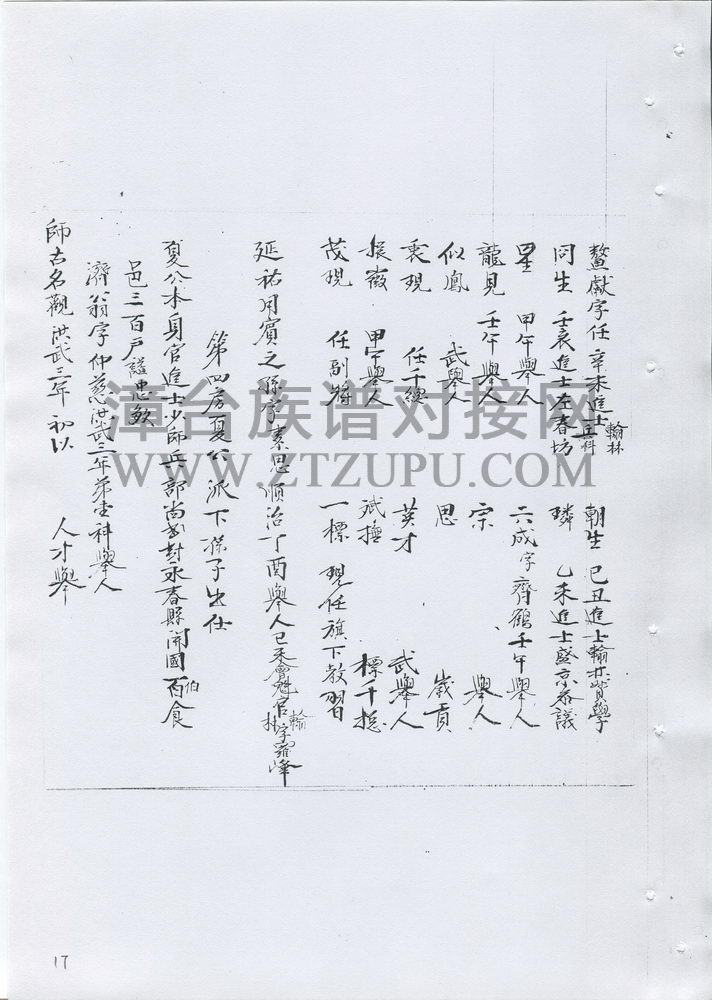 鰲獻字任 辛未進士 翰林 朝生 己丑進士翰林
問生 壬辰進士左春坊 璘 乙未進士盛京參議
星 甲午舉人 六成字齊鶴壬午舉人
龍見 壬午舉人 宗 舉人
似鳳 武舉人 思 歲貢
秉現 任千總 英才 武舉人
振徽 甲午舉人 斌 標千總
茂現 任副將 一標 現任旗下教習
延祐用賓之孫字素思順治丁酉舉人己未會魁官翰林字羅峰
第四房夏公派下孫子出仕
夏公本身官進士少師兵部尚書封永春縣開國伯食
邑三百戶謚忠
濟翁字仲慈洪武三年第壹科舉人
師古名觀洪武三年初以 人才舉
17
漳台族谱对接网
WWW.ZTZUPU.COM